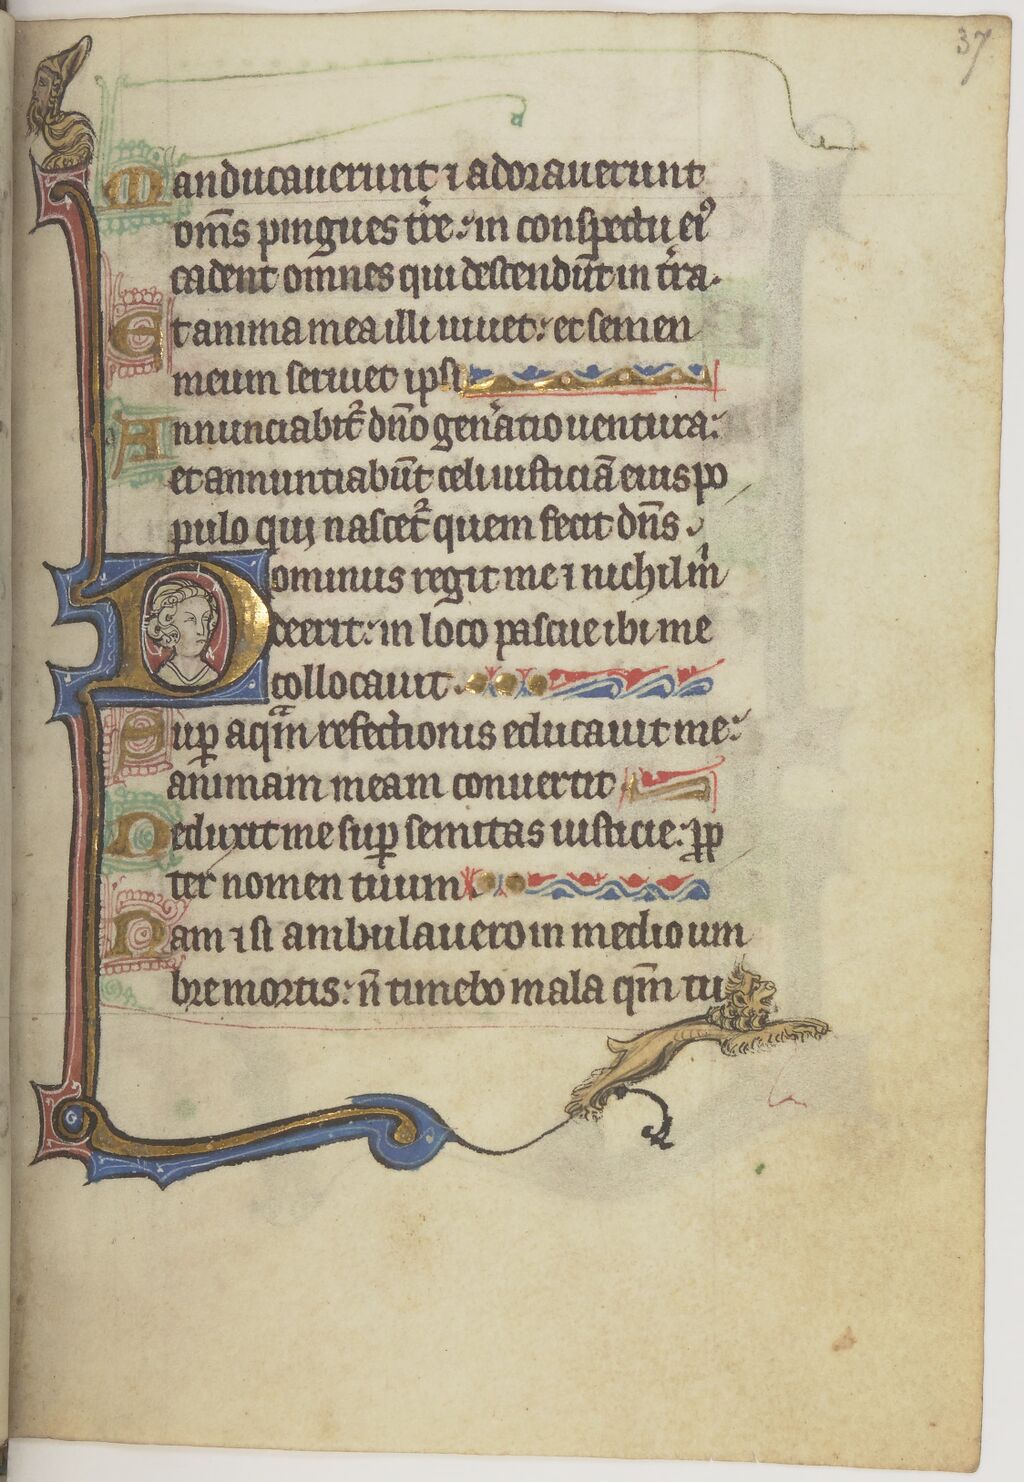 37
Manducauerunt ⁊ adorauerunt
om̅s pingues tr̅e: in conspectu ei⁹
cadent omnes qui descendu̅t in tr̅a.
Et anima mea illi uiuet: et semen
meum seruiet ipsi
Annunciabit᷑ dn̅o gen̅atio uentura:
et annuntiabu̅t celi iusticia̅ eius po
pulo qui nascet᷑ quem fecit dn̅s
Dominus regit me ⁊ nichil m̅
deerit: in loco pascue ibi me
collocauit.
Sup̲ aqͣm refectionis educauit me:
animam meam conuertit
Deduxit me sup̲ semitas iusticie: p̲p
ter nomen tuum.
Nam ⁊ si ambulauero in medio um
bre mortis: n̅ timebo mala qm̅ tu